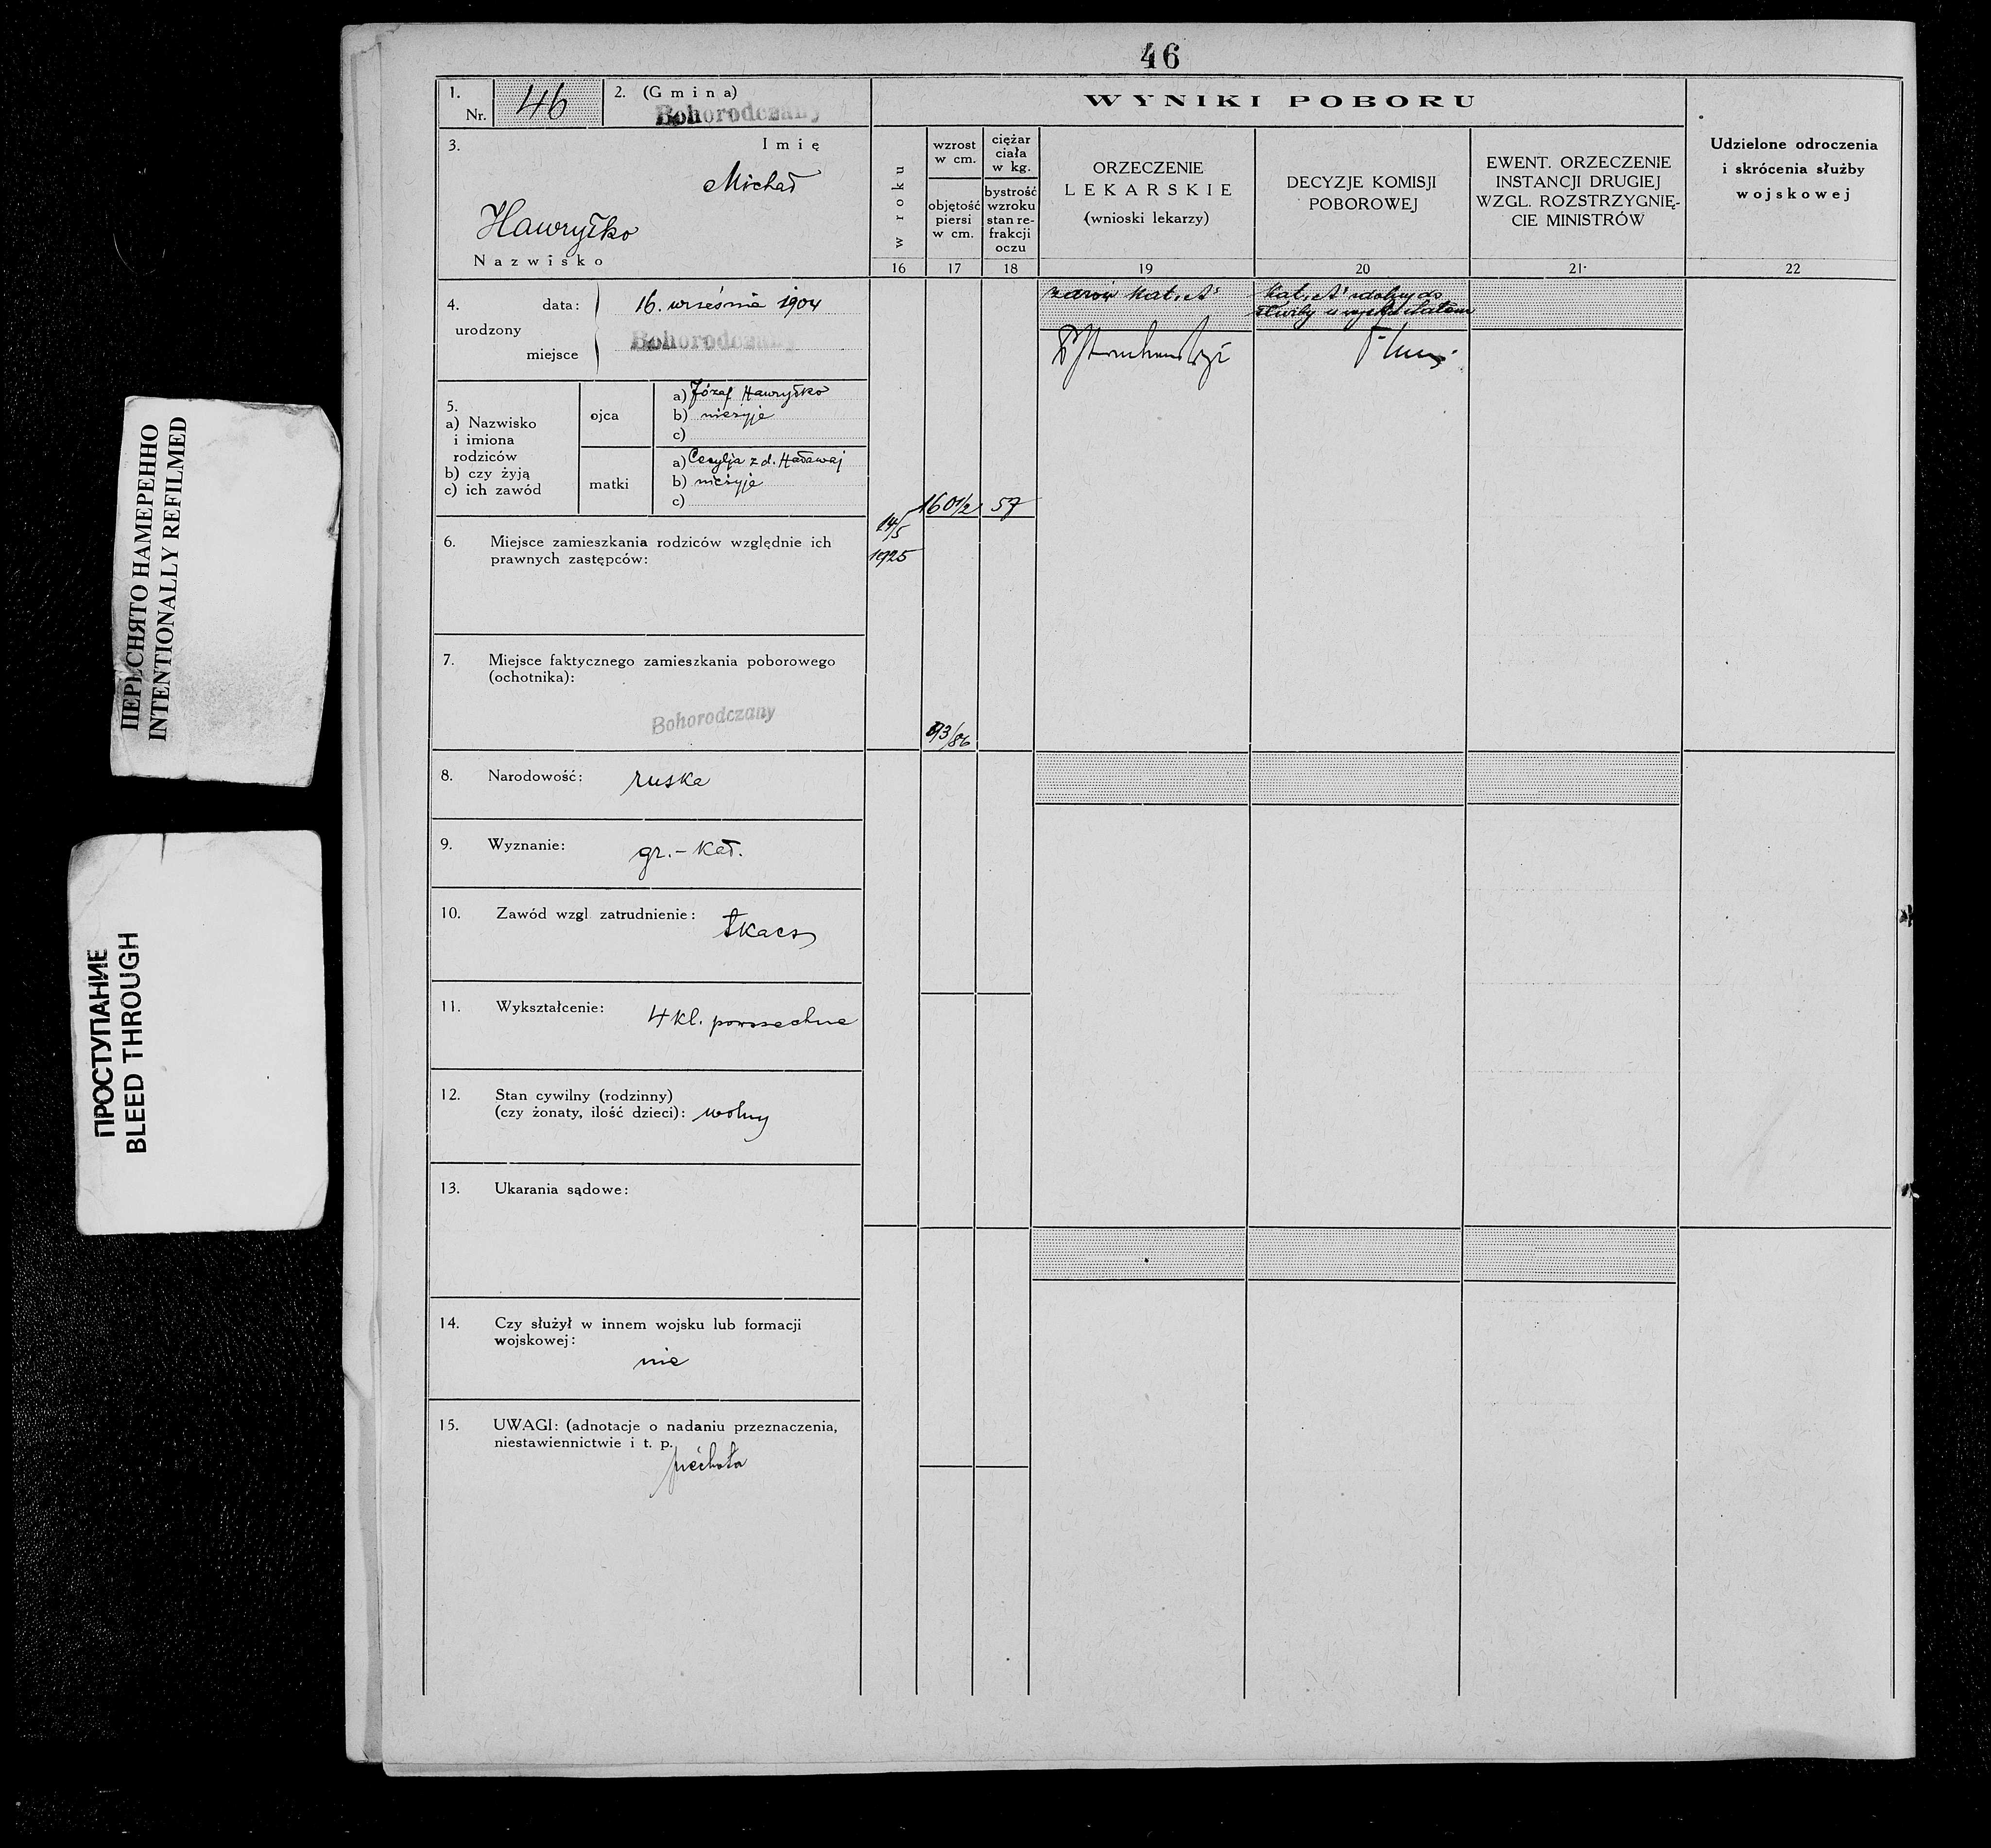 46
1.
Nr. 46
2. (Gmina)
Bohorodczany
3. Imię
Michał
Hawryłko
Nazwisko
4. urodzony
data: 16. września 1904
miejsce Bohorodczany
5.
a) Nazwisko
i imiona
rodziców
b) czy żyją
c) ich zawód
ojca
a) Józef Hawryłko
b) nieżyje
c)
matki
a) Cecylja z d. Haławaj
b) nieżyje
c)
6. Miejsce zamieszkania rodziców względnie ich
prawnych zastępców:
7. Miejsce faktycznego zamieszkania poborowego
(ochotnika):
Bohorodczany
8. Narodowość: ruska
9. Wyznanie: gr.-kat.
10. Zawód wzgl. zatrudnienie: tkacz
11. Wykształcenie: 4 kl. powszechne
12. Stan cywilny (rodzinny)
(czy żonaty, ilość dzieci): wolny
13. Ukarania sądowe:
14. Czy służył w innem wojsku lub formacji
wojskowej:
nie
15. UWAGI: (adnotacje o nadaniu przeznaczenia,
niestawiennictwie i t. p.
piechota
WYNIKI POBORU
w roku
16
wzrost
w cm.
objętość
piersi
w cm.
17
ciężar
ciała
w kg.
bystrość
wzroku
stan re-
frakcji
oczu
18
ORZECZENIE
LEKARSKIE
(wnioski lekarzy)
19
DECYZJE KOMISJI
POBOROWEJ
20
EWENT. ORZECZENIE
INSTANCJI DRUGIEJ
WZGL. ROZSTRZYGNIĘ-
CIE MINISTRÓW
21.
Udzielone odroczenia
i skrócenia służby
wojskowej
22
14/5
1925
160 1/2
57
93/86
zdrów kat. A
Kat. A zdolny do
służby w wojsku
ПЕРЕСНЯТО НАМЕРЕННО
INTENTIONALLY REFILMED
ПРОСТУПАНИЕ
BLEED THROUGH